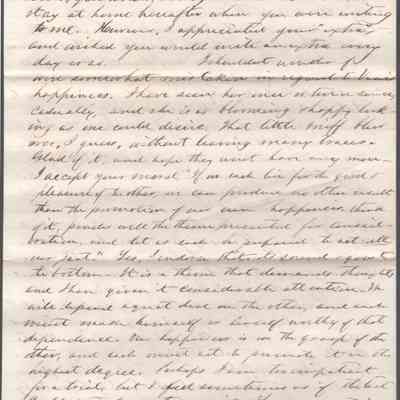 stay at home hereafter when you were writing
to me. However, I appreciated your extra,
and wished you would write an extra every
day or so. I shouldn't wonder if I
were somewhat mistaken in regard to
happiness. I have seen her once or twice since,
casually, and she is as blooming & happy look
ing as one could desire. That little miff blew
over, I guess, without leaving many traces.
Glad of it, and hope they wont have any more.
I accept your moral "If we each live for the good &
pleasure of the other, we can produce no other result
than the promotion of our own happiness. Think
of it, ponder well the theme presented for consid-
eration, and let us each be prepared to act all
our part." Yes, I endorse that as sound
to bottom. It is a theme that demands thought
and I have given it considerable attention. We
will depend a great deal on the other, and each
must make himself or herself worthy of that
dependence. Our happiness is in the grasp of the
other, and each must act to promote it in the
highest degree. Perhaps I am too impatient
for a trial, but I feel sometimes as if the